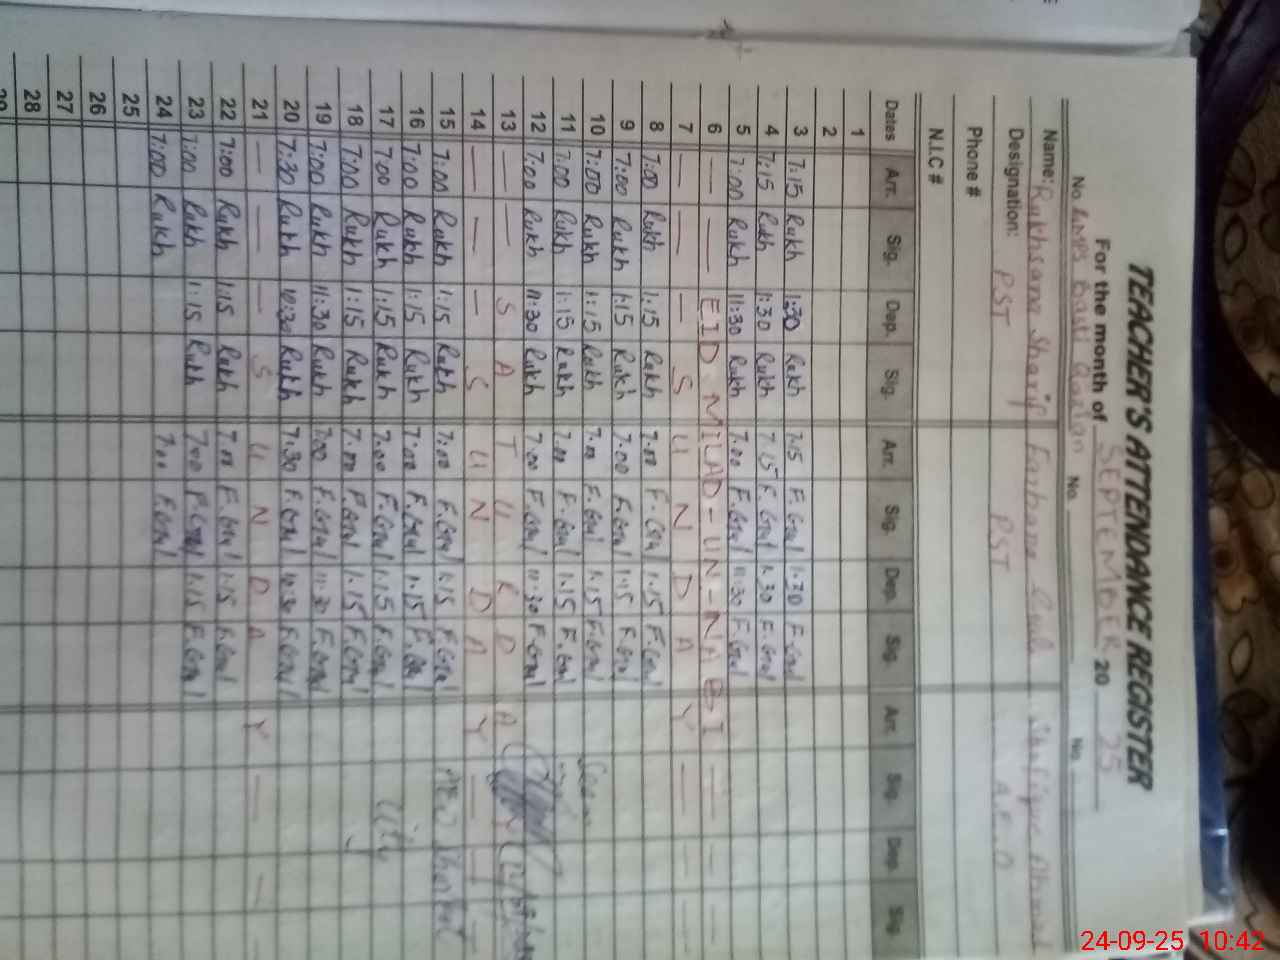 TEACHER'S ATTENDANCE REGISTER
For the month of SEPTEMBER 20 25
No. GMPS Basti Qazian No. No.
Name: Rukhsana Sharif Farhana Gul Shafique Ahmad
Designation: PST PST A.E.O
Phone #
N.I.C #
Dates Arr. Sig. Dep. Sig. Arr. Sig. Dep. Sig. Arr. Sig. Dep. Sig.
1
2
3 7:15 Rukh 1:30 Rukh 7.15 F.Gul 1.30 F.Gul
4 7:15 Rukh 1:30 Rukh 7.15 F.Gul 1.30 F.Gul
5 7:00 Rukh 11:30 Rukh 7.00 F.Gul 11:30 F.Gul
6 — — EID-MILAD-UN-NABI — —
7 — — — S U N D A Y — — —
8 7:00 Rukh 1:15 Rukh 7.00 F.Gul 1.15 F.Gul
9 7:00 Rukh 1:15 Rukh 7.00 F.Gul 1.15 F.Gul
10 7:00 Rukh 1:15 Rukh 7.00 F.Gul 1.15 F.Gul
11 7:00 Rukh 1:15 Rukh 7.00 F.Gul 1.15 F.Gul
12 7:00 Rukh 11:30 Rukh 7.00 F.Gul 11.30 F.Gul
13 — — S A T U R D A Y
14 — — — S U N D A Y — —
15 7:00 Rukh 1:15 Rukh 7.00 F.Gul 1.15 F.Gul
16 7:00 Rukh 1:15 Rukh 7.00 F.Gul 1.15 F.Gul
17 7:00 Rukh 1:15 Rukh 7.00 F.Gul 1.15 F.Gul
18 7:00 Rukh 1:15 Rukh 7.00 F.Gul 1.15 F.Gul
19 7:00 Rukh 11:30 Rukh 7.00 F.Gul 11.30 F.Gul
20 7:30 Rukh 10:30 Rukh 7.30 F.Gul 10.30 F.Gul
21 — — — S U N D A Y — — —
22 7:00 Rukh 1:15 Rukh 7.00 F.Gul 1.15 F.Gul
23 7:00 Rukh 1:15 Rukh 7.00 F.Gul 1.15 F.Gul
24 7:00 Rukh 7.00 F.Gul
25
26
27
28
29
24-09-25 10:42